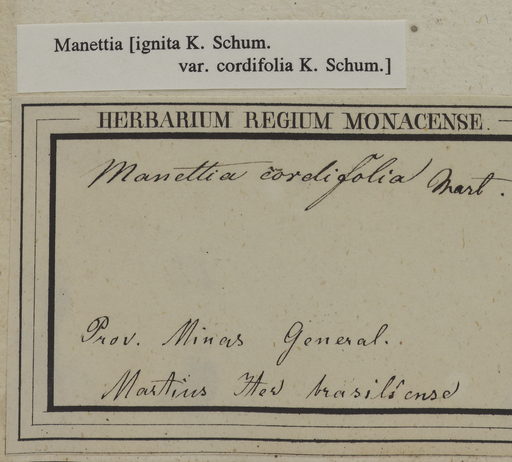 Manettia [ignita K. Schum.
var. cordifolia K. Schum.]
HERBARIUM REGIUM MONACENSE.
Manettia cordifolia Mart.
Prov. Minas General.
Martius Iter brasiliense